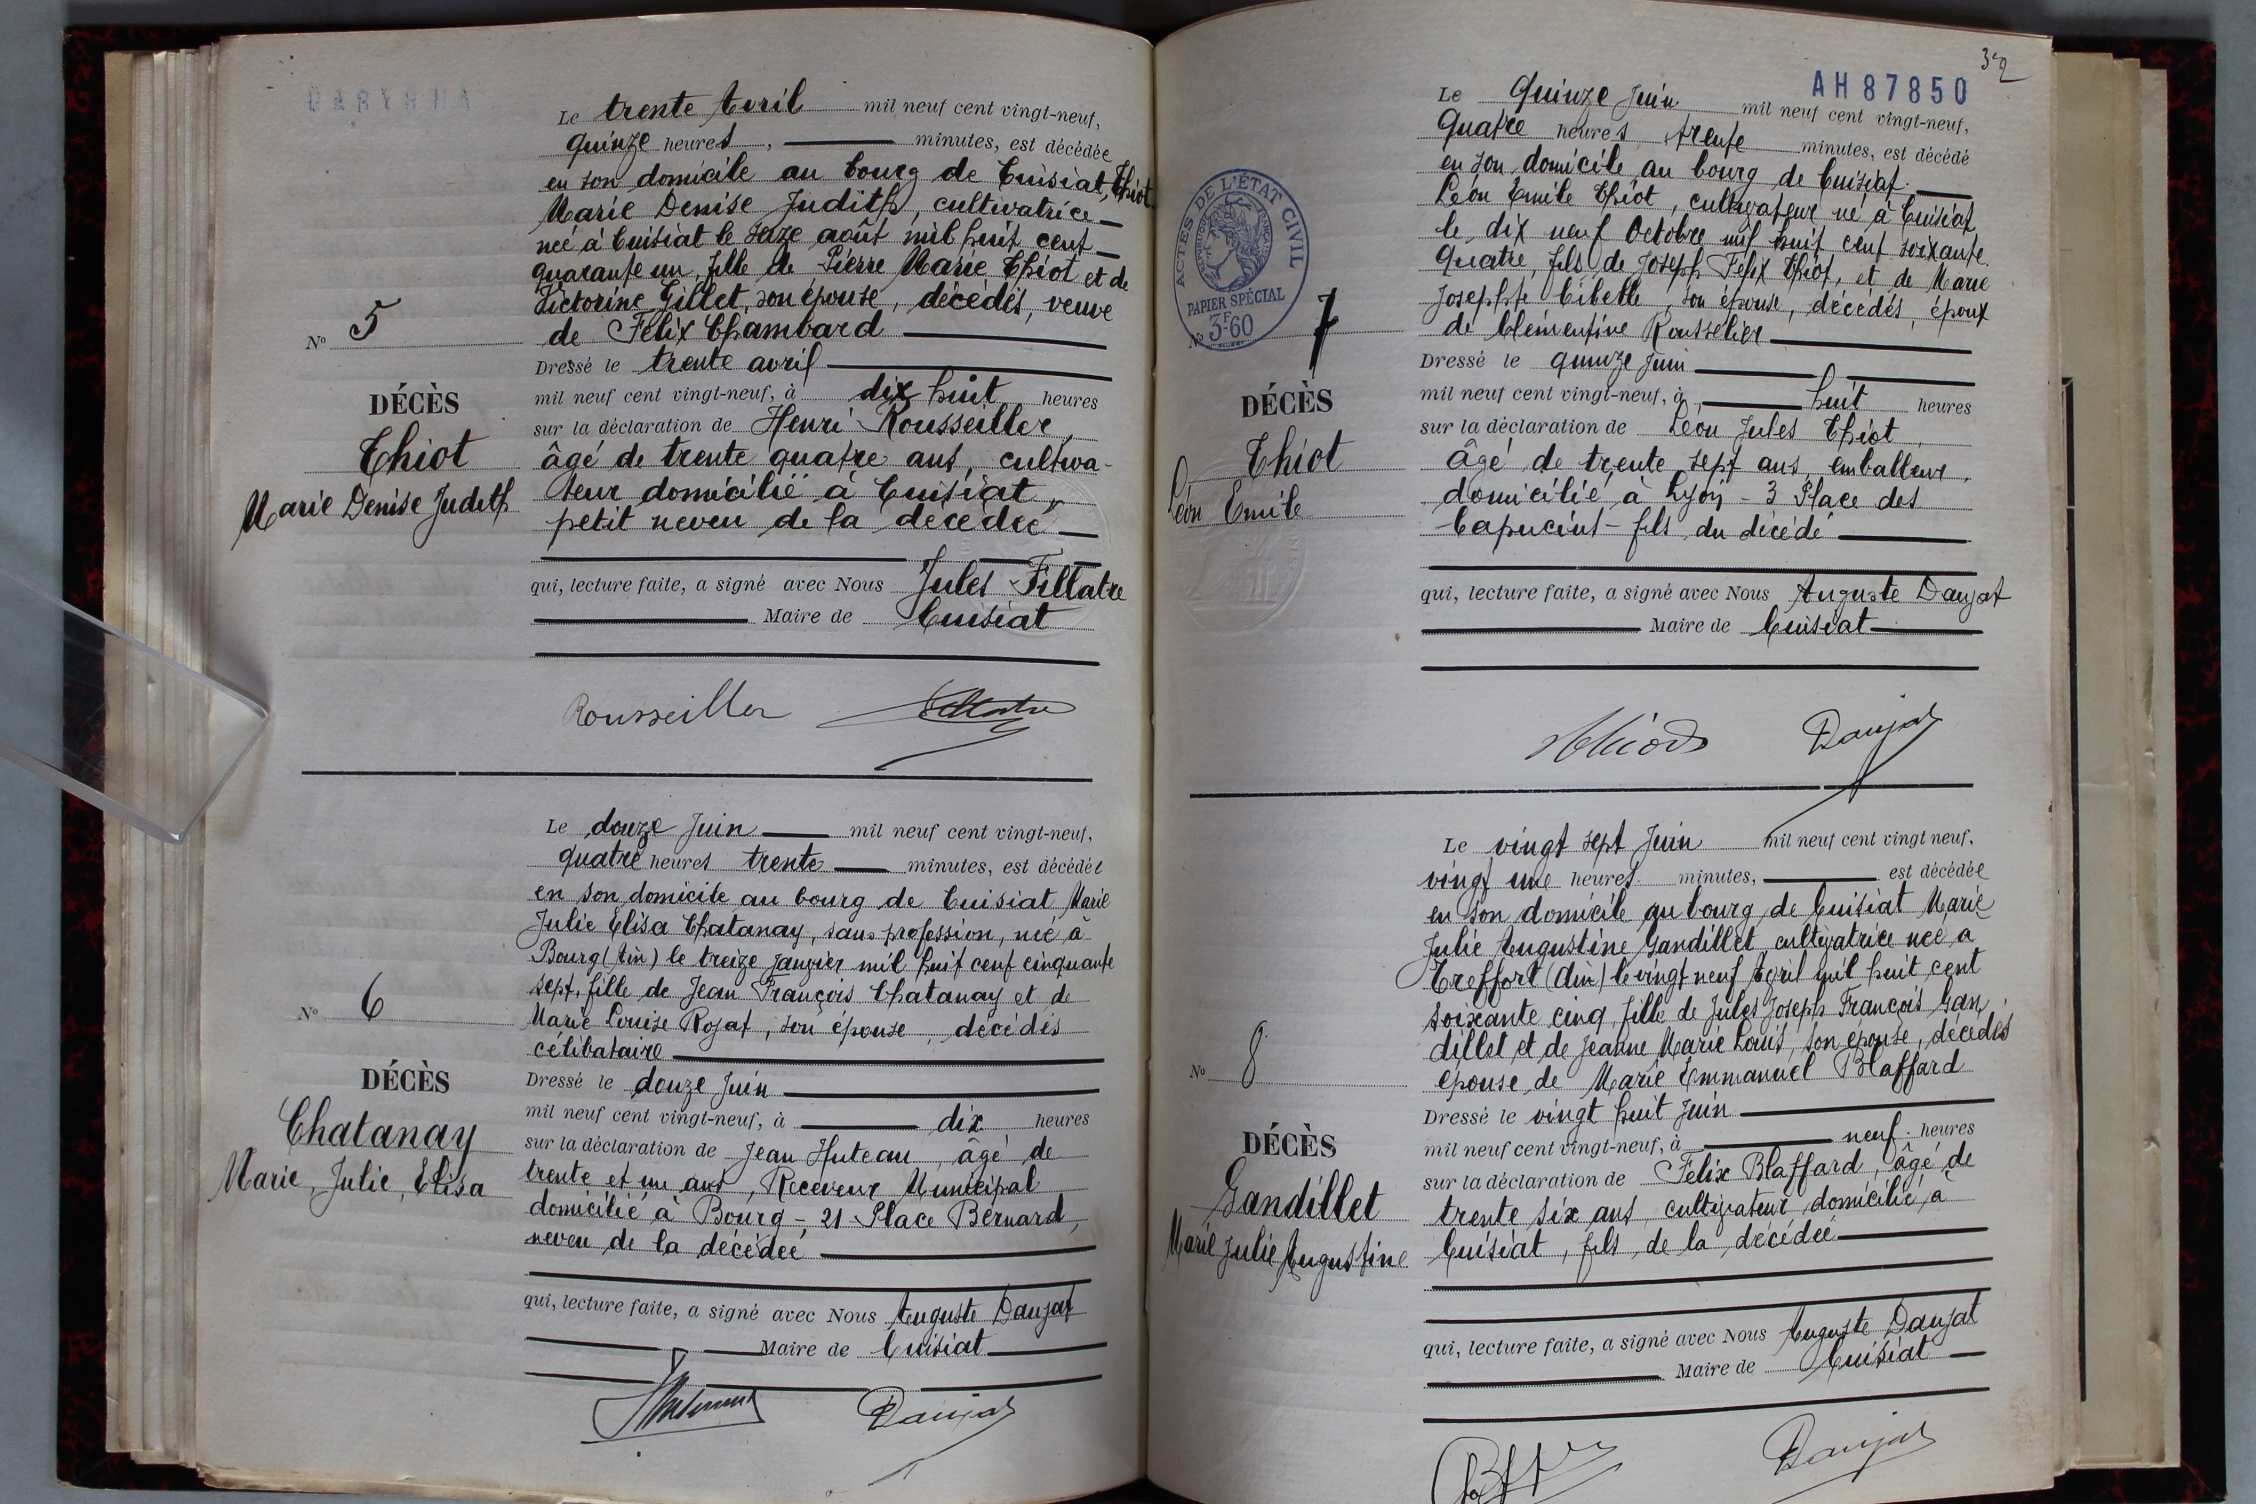 Le trente Avril mil neuf cent vingt-neuf,
quinze heures, minutes, est décédée
en son domicile au bourg de Cuisiat, Thiot
Marie Denise Judith, cultivatrice
née à Cuisiat le seize août mil huit cent
quarante un, fille de Pierre Marie Thiot et de
Victorine Gillet, son épouse, décédés, veuve
de Félix Chambard
Nº 5
Dressé le trente avril
mil neuf cent vingt-neuf, à dix huit heures
DÉCÈS
sur la déclaration de Henri Rousseiller,
Thiot
âgé de trente quatre ans, cultiva-
Marie Denise Judith
teur domicilié à Cuisiat,
petit neveu de la décédée
qui, lecture faite, a signé avec Nous Jules Fillatre
Maire de Cuisiat
Rousseiller
Le douze Juin mil neuf cent vingt-neuf,
quatre heures trente minutes, est décédée
en son domicile au bourg de Cuisiat Marie
Julie Élisa Chatanay, sans profession, née à
Bourg (Ain) le treize janvier mil huit cent cinquante
sept, fille de Jean François Chatanay et de
Marie Louise Rojat, son épouse, décédés
célibataire
Nº 6
Dressé le douze Juin
mil neuf cent vingt-neuf, à dix heures
DÉCÈS
sur la déclaration de Jean Huteau, âgé de
Chatanay
trente et un ans, Receveur Municipal
Marie, Julie, Elisa
domicilié à Bourg - 21 Place Bernard,
neveu de la décédée
qui, lecture faite, a signé avec Nous Auguste Daujat
Maire de Cuisiat
Daujat
32
AH87850
Le Quinze Juin mil neuf cent vingt-neuf,
Quatre heures, trente minutes, est décédé
en son domicile au bourg de Cuisiat
Léon Emile Thiot, cultivateur né à Cuisiat
le dix neuf Octobre mil huit cent soixante
quatre, fils de Joseph Félix Thiot, et de Marie
Josephte Cibelle, son épouse, décédés, époux
de Clémentine Rousselier
ACTES DE L'ÉTAT CIVIL
PAPIER SPÉCIAL
3F.60
Nº 7
Dressé le quinze Juin
mil neuf cent vingt-neuf, à huit heures
DÉCÈS
sur la déclaration de Léon Jules Thiot,
Thiot
âgé de trente sept ans, emballeur,
Léon Emile
domicilié à Lyon - 3 Place des
Capucins - fils du décédé
qui, lecture faite, a signé avec Nous Auguste Daujat
Maire de Cuisiat
Thiot Daujat
Le vingt sept Juin mil neuf cent vingt neuf,
vingt une heures minutes, est décédée
en son domicile au bourg de Cuisiat Marie
Julie Augustine Gandillet cultivatrice née à
Treffort (Ain) le vingt neuf Avril mil huit cent
soixante cinq, fille de Jules Joseph François Gan
dillet et de Jeanne Marie Louis, son épouse, décédés
épouse de Marie Emmanuel Blaffard
Nº 8
Dressé le vingt huit Juin
mil neuf cent vingt-neuf, à neuf heures
DÉCÈS
sur la déclaration de Félix Blaffard, âgé de
Gandillet
trente six ans, cultivateur domicilié à
Marie Julie Augustine
Cuisiat, fils de la décédée
qui, lecture faite, a signé avec Nous Auguste Daujat
Maire de Cuisiat
Daujat